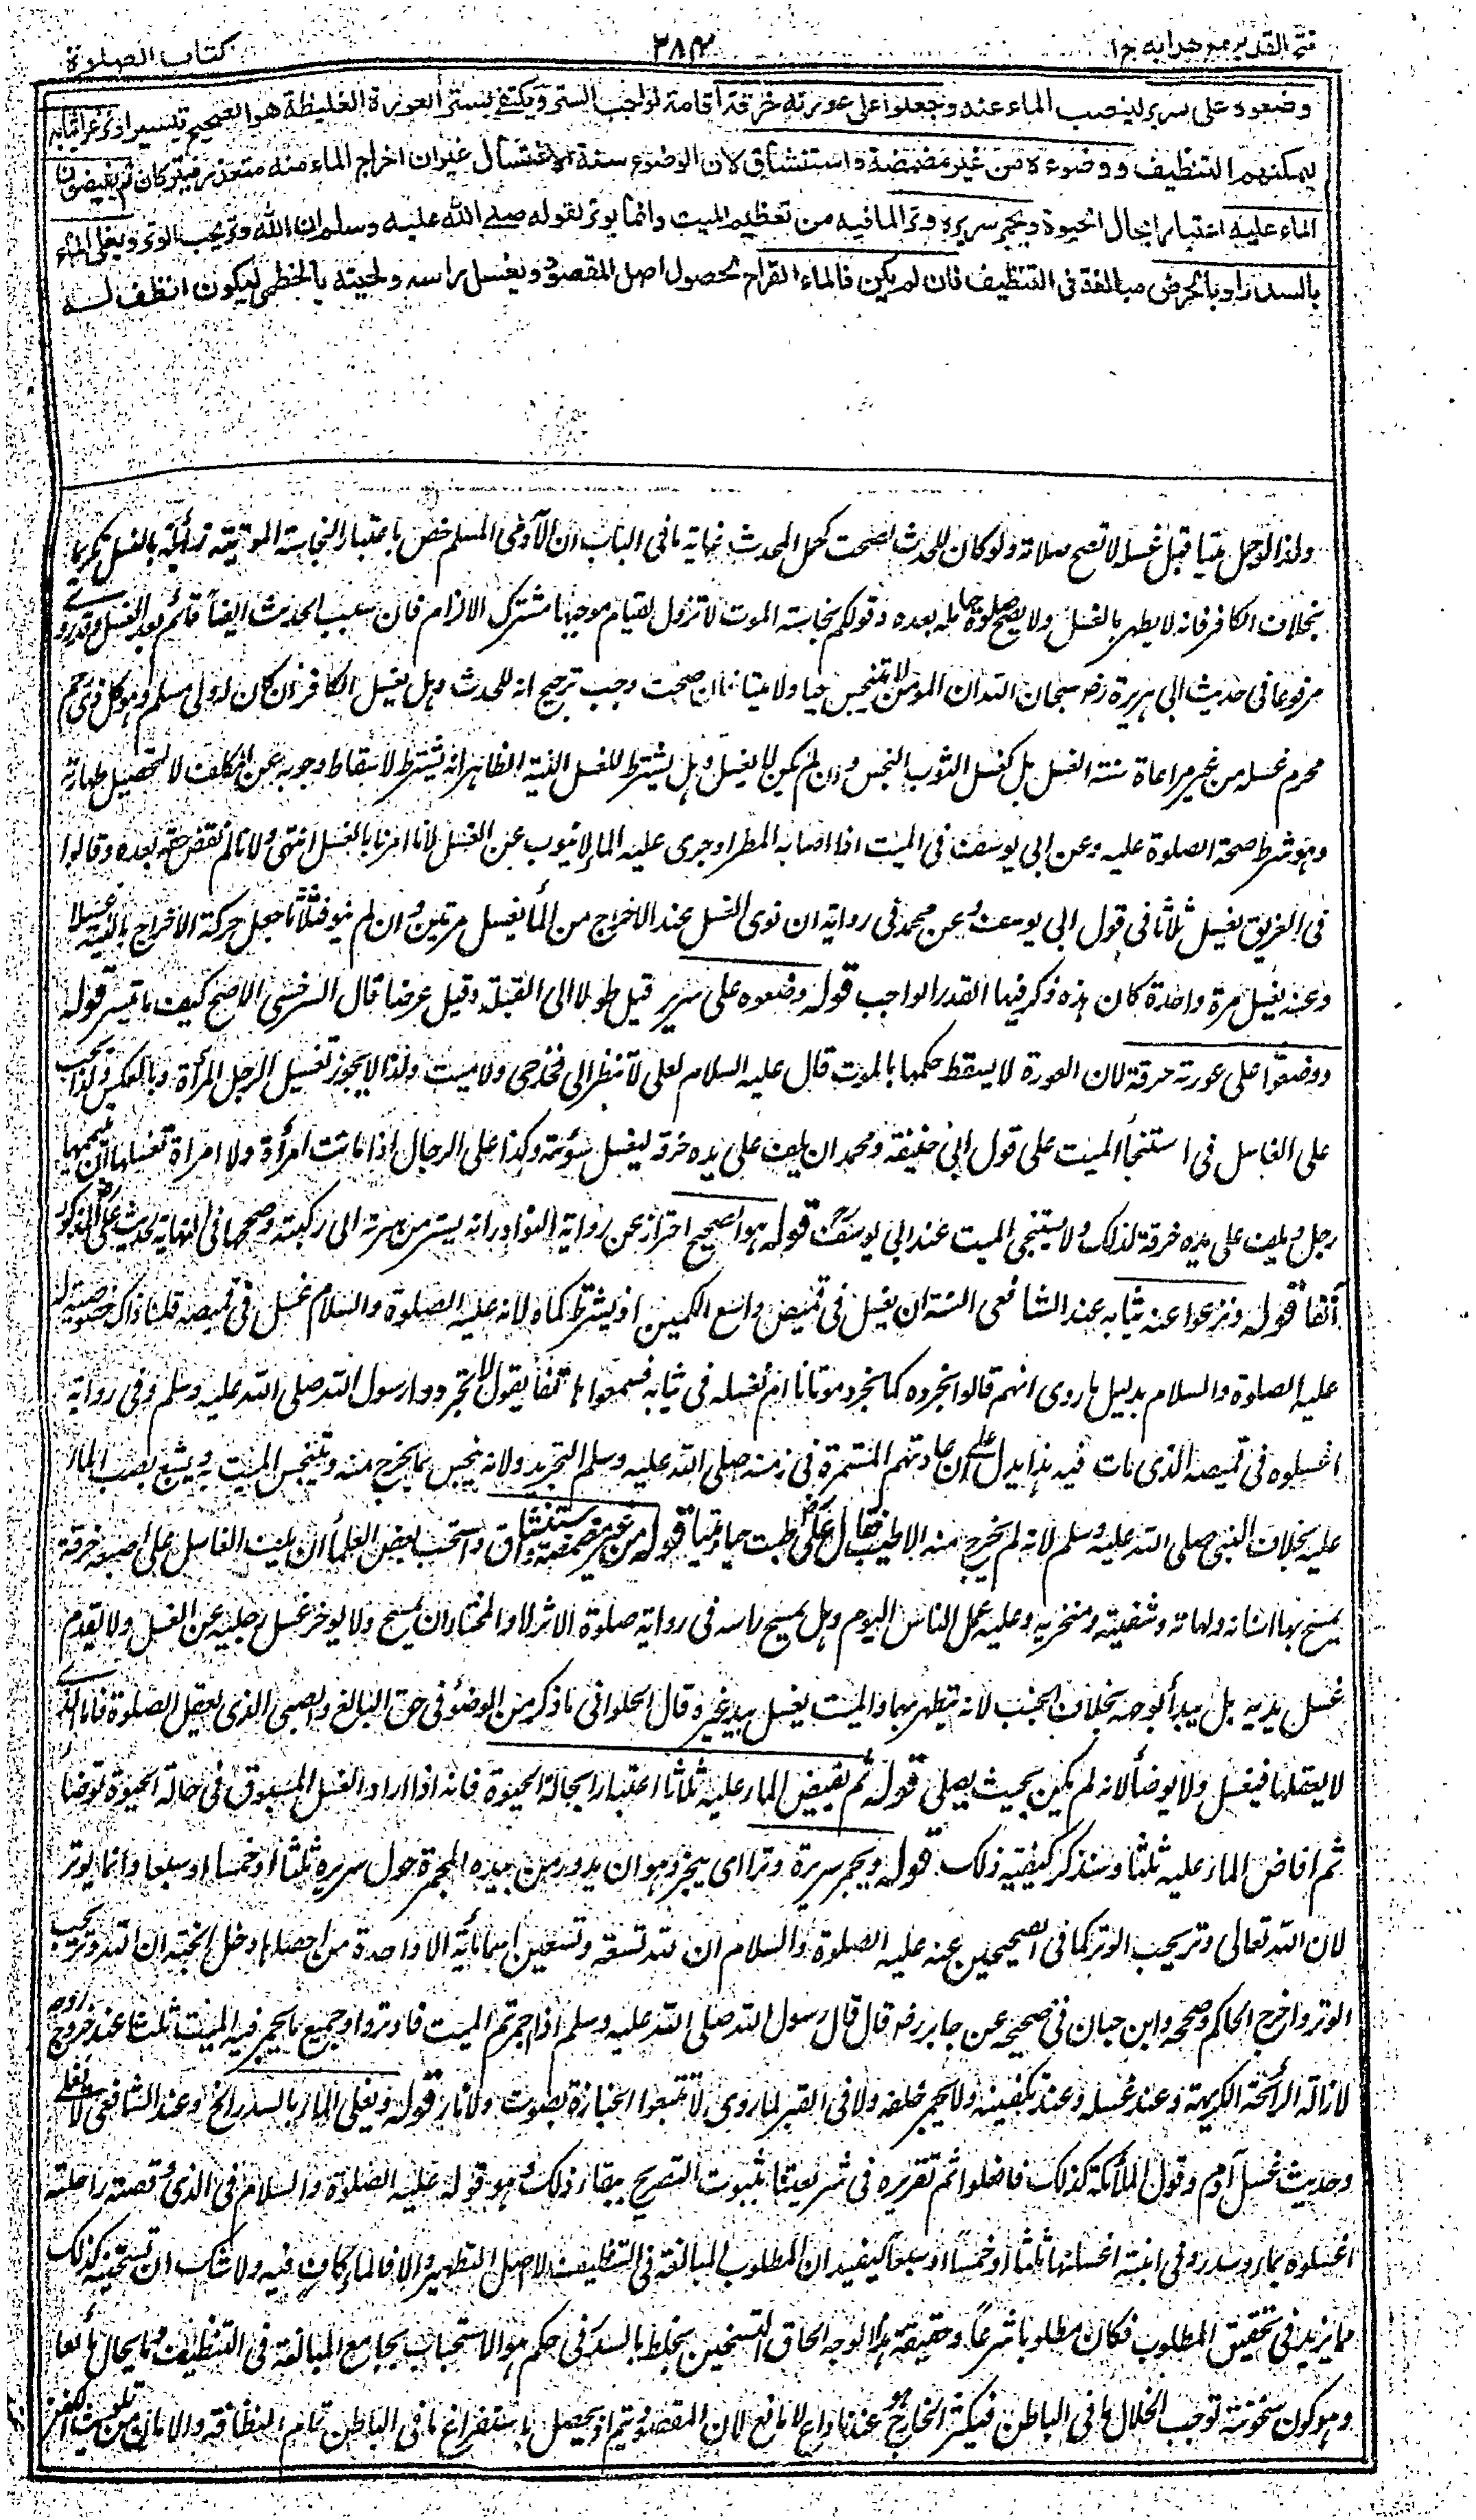 فتح القدير مع هدايه ج ١
٣٨٢
كتاب الصلوة
وضعوه على سرير لينصب الماء عنه وجعلوا على عورته خرقة اقامة لواجب الستر ويكتفي بستر العورة الغليظة هو الصحيح تيسيرا ونزعوا ثيابه
ليمكنهم التنظيف ووضوءه من غير مضمضة واستنشاق لان الوضوء سنة الاغتسال غير ان اخراج الماء منه متعذر فيتركان ثم يفيضون
الماء عليه اعتبارا بحال الحيوة ويجمر سريره وترا لما فيه من تعظيم الميت وانما يوتر لقوله صلى الله عليه وسلم ان الله وتر يحب الوتر ويغلى الماء
بالسدر او بالحرض مبالغة في التنظيف فان لم يكن فالماء القراح لحصول اصل المقصود ويغسل راسه ولحيته بالخطمى ليكون انظف له
ولذا لو حمل ميتا قبل غسله لا تصح صلاته ولو كان للحدث لصحت كحمل المحدث غاية ما في الباب ان الآدمى المسلم خص باعتبار النجاسة الموتية زائلة بالغسل تكريما
بخلاف الكافر فانه لا يطهر بالغسل ولا يصح صلوة حامله بعده وقولكم نجاسة الموت لا تزول لقيام موجبها مشترك الالزام فان سبب الحدث ايضا قائم بعد الغسل وقد روى
مرفوعا في حديث ابى هريرة رضه سبحان الله ان المومن لا يتنجس حيا ولا ميتا فان صحت وجب ترجيح انه للحدث وهل يغسل الكافر ان كان له ولى مسلم وهو كل ذى رحم
محرم غسله من غير مراعاة سنة الغسل بل كغسل الثوب النجس وان لم يكن لا يغسل وهل يشترط للغسل النية الظاهر انه يشترط لاسقاط وجوبه عن المكلف لا لتحصيل طهارته
وهو شرط صحة الصلوة عليه وعن ابى يوسف في الميت اذا اصابه المطر او جرى عليه الماء لا ينوب عن الغسل لانا امرنا بالغسل انتهى ولانا لم نقض حقه بعده وقالوا
في الغريق يغسل ثلاثا في قول ابى يوسف وعن محمد في رواية ان نوى الغسل عند الاخراج من الماء يغسل مرتين وان لم ينو فثلاثا جعل حركة الاخراج بالنية غسلا
وعنه يغسل مرة واحدة كان هذه ذكر فيها القدر الواجب قوله وضعوه على سرير قيل طولا الى القبلة وقيل عرضا قال السرخسى الاصح كيف ما تيسر قوله
ووضعوا على عورته خرقة لان العورة لا يسقط حكمها بالموت قال عليه السلام لعلى لا تنظر الى فخذ حى ولا ميت ولذا لا يجوز تغسيل الرجل المرأة وبالعكس وكذا يجب
على الغاسل في استنجاء الميت على قول ابى حنيفة ومحمد ان يلف على يده خرقة ليغسل سوءته وكذا على الرجال اذا ماتت امرأة ولا امرأة تغسلها ان ييممها
رجل ويلف على يده خرقة لذلك ولا يستنجى الميت عند ابى يوسف قوله هو الصحيح احتراز عن رواية النوادر انه يستر من سرته الى ركبته وصححها في النهاية لحديث على المذكور
آنفا قوله ونزعوا عنه ثيابه عند الشافعى السنة ان يغسل في قميص واسع الكمين او يشترط كماه لانه عليه الصلوة والسلام غسل في قميصه قلنا ذاك خصوصية له
عليه الصلوة والسلام بدليل ما روى انهم قالوا نجرده كما نجرد موتانا ام نغسله في ثيابه فسمعوا هاتفا يقول لا تجردوا رسول الله صلى الله عليه وسلم وفى رواية
اغسلوه في قميصه الذى مات فيه فهذا يدل على ان عادتهم المستمرة في زمنه صلى الله عليه وسلم التجريد ولانه يتنجس بما يخرج منه ويتنجس الميت به ويشيع بصب الماء
عليه بخلاف النبى صلى الله عليه وسلم لانه لم يخرج منه الا طيب فقال على رض طبت حيا وميتا قوله من غير مضمضة واستنشاق واستحب بعض العلماء ان يلف الغاسل على اصبعه خرقة
يمسح بها اسنانه ولهاته وشفتيه ومنخريه وعليه عمل الناس اليوم وهل يمسح راسه في رواية صلوة الاثر لا والمختار ان يمسح ولا يوخر غسل رجليه عن الغسل ولا يقدم
غسل يديه بل يبدأ بوجهه بخلاف الجنب لانه يتطهر بهما والميت يغسل بيد غيره قال الحلوانى ما ذكر من الوضوء في حق البالغ والصبى الذى يعقل الصلوة فاما الذى
لا يعقلها فيغسل ولا يوضأ لانه لم يكن بحيث يصلى قوله ثم يفيض الماء عليه ثلاثا اعتبارا بحالة الحيوة فانه اذا اراد الغسل المسنون في حالة الحيوة توضأ
ثم افاض الماء عليه ثلثا وسنذكر كيفيته ذلك قوله ويجمر سريره وترا اى يبخر وهو ان يدور من بيده المجمرة حول سريره ثلثا او خمسا او سبعا وانما يوتر
لان الله تعالى وتر يحب الوتر كما في الصحيحين عنه عليه الصلوة والسلام ان لله تسعة وتسعين اسما مائة الا واحدة من احصاها دخل الجنة ان الله وتر يحب
الوتر واخرج الحاكم وصححه وابن حبان في صحيحه عن جابر رضه قال قال رسول الله صلى الله عليه وسلم اذا جمرتم الميت فاوتروا وجميع ما يجمر فيه الميت ثلث عند خروج روحه
لازالة الرائحة الكريهة وعند غسله وعند تكفينه ولا يجمر خلفه ولا في القبر لما روى لا تتبعوا الجنازة بصوت ولا نار قوله ويغلى الماء بالسدر الخ وعند الشافعى لا يغلى
وحديث غسل آدم وقول الملائكة كذلك فافعلوا ثم تقريره في شريعتنا بثبوت التصريح ببقاء ذلك وهو قوله عليه الصلوة والسلام في الذى وقصته راحلته
اغسلوه بماء وسدر وفى ابنته اغسلنها ثلثا او خمسا او سبعا يفيد ان المطلوب المبالغة في التنظيف لا اصل التطهير والا فالماء كاف فيه ولا شك ان تسخينه كذلك
مما يزيد في تحقيق المطلوب فكان مطلوبا شرعا وحقيقة هذا الوجه الحاق التسخين بخلطه بالسدر في حكم هو الاستحباب بجامع المبالغة في التنظيف وما يخال مانعا
وهو كون سخونته توجب انحلال ما في الباطن فيكثر الخارج هو عندنا داع لا مانع لان المقصود يتم اذ يحصل باستفراغ ما في الباطن تمام النظافة والامان من تلويث الكفن